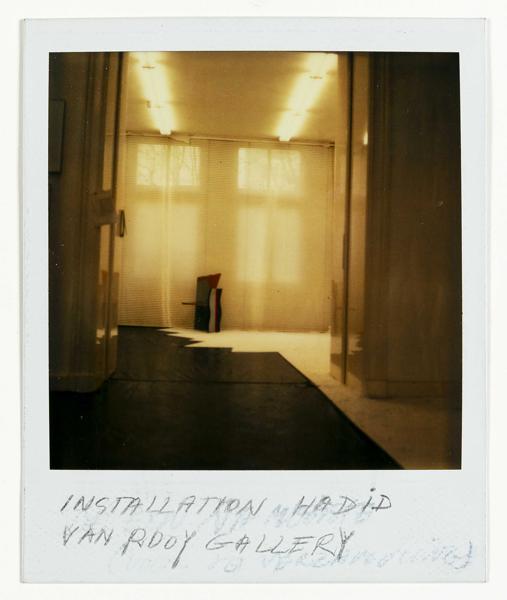 INSTALLATION HADID
VAN ROOY GALLERY